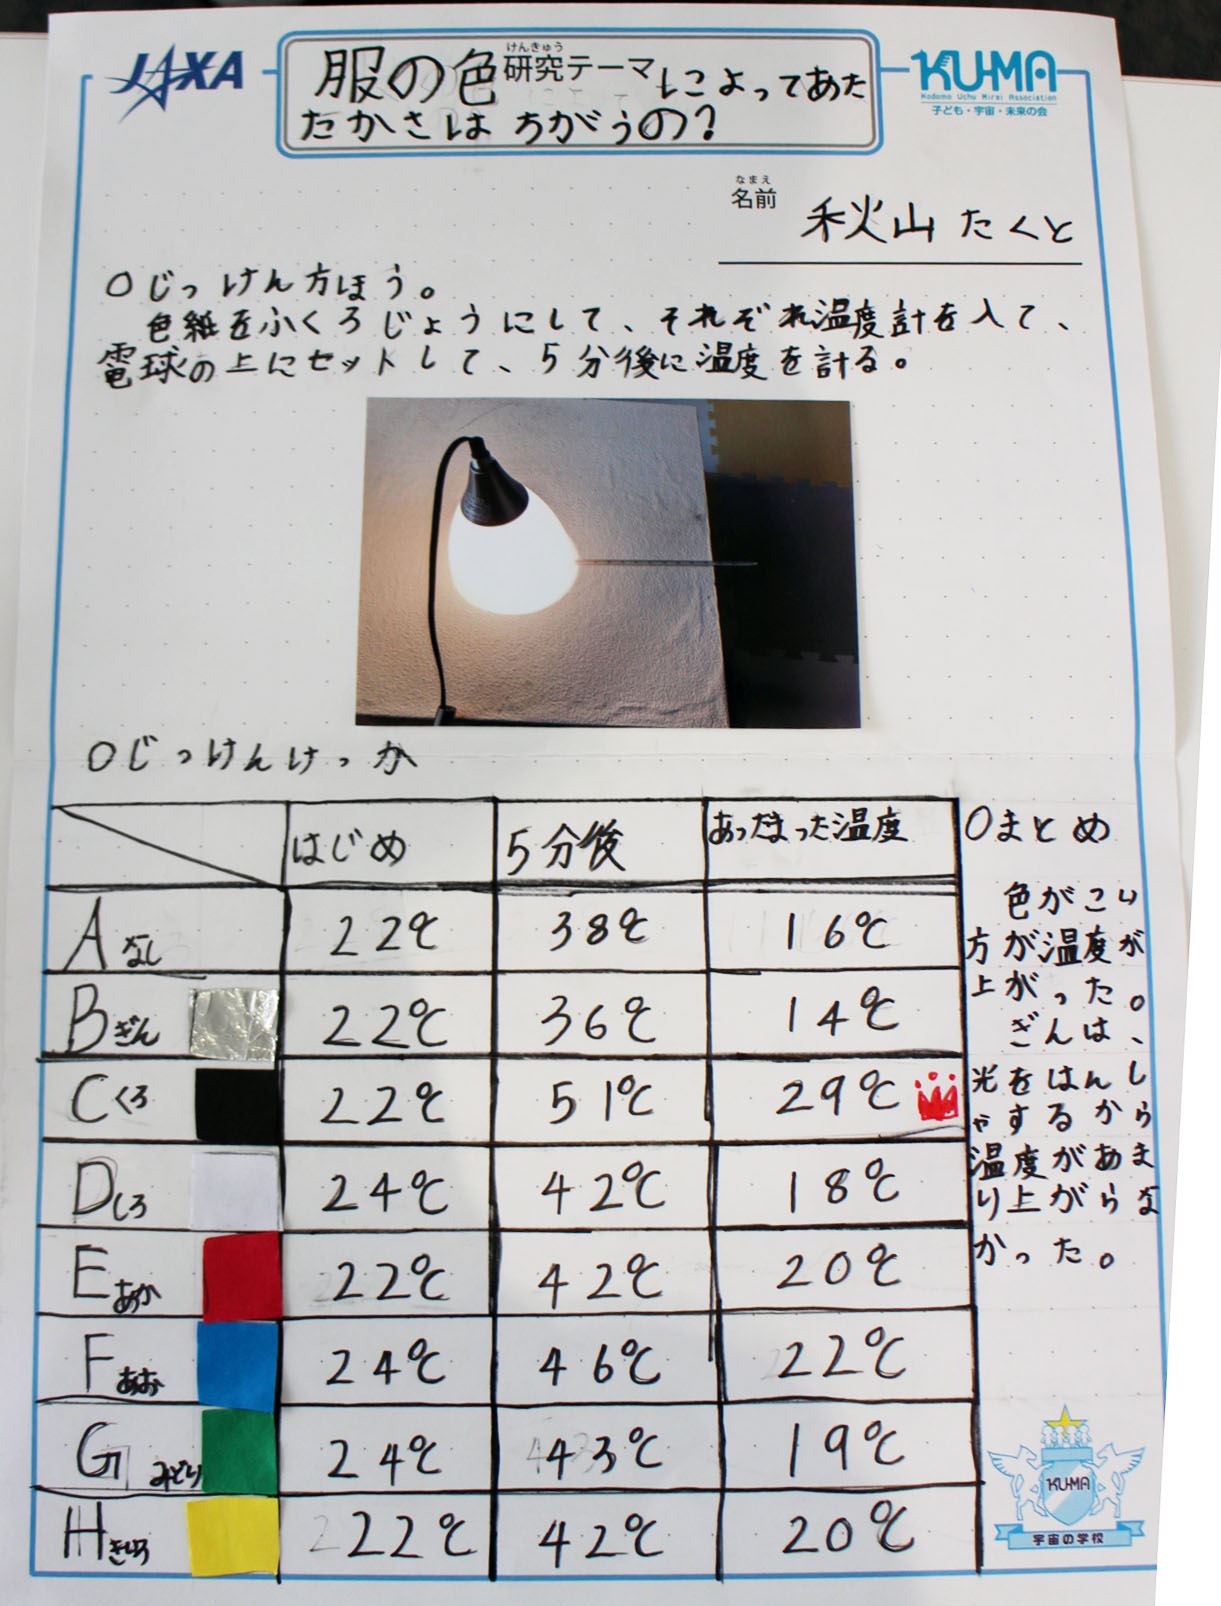 JAXA
けんきゅう
服の色研究テーマによってあた
たかさはちがうの?
KU-MA
Kodomo Uchu Mirai Association
子ども・宇宙・未来の会
なまえ
名前
秋山たくと
○じっけん方ほう。
色紙をふくろじょうにして、それぞれ温度計を入て、
電球の上にセットして、5分後に温度を計る。
○じっけんけっか
はじめ 5分後 あったまった温度
Aなし 22℃ 38℃ 16℃
Bぎん 22℃ 36℃ 14℃
Cくろ 22℃ 51℃ 29℃
Dしろ 24℃ 42℃ 18℃
Eあか 22℃ 42℃ 20℃
Fあお 24℃ 46℃ 22℃
Gみどり 24℃ 43℃ 19℃
Hきいろ 22℃ 42℃ 20℃
○まとめ
色がこい
方が温度が
上がった。
ぎんは、
光をはんし
ゃするから
温度があま
り上がらな
かった。
KU-MA
宇宙の学校